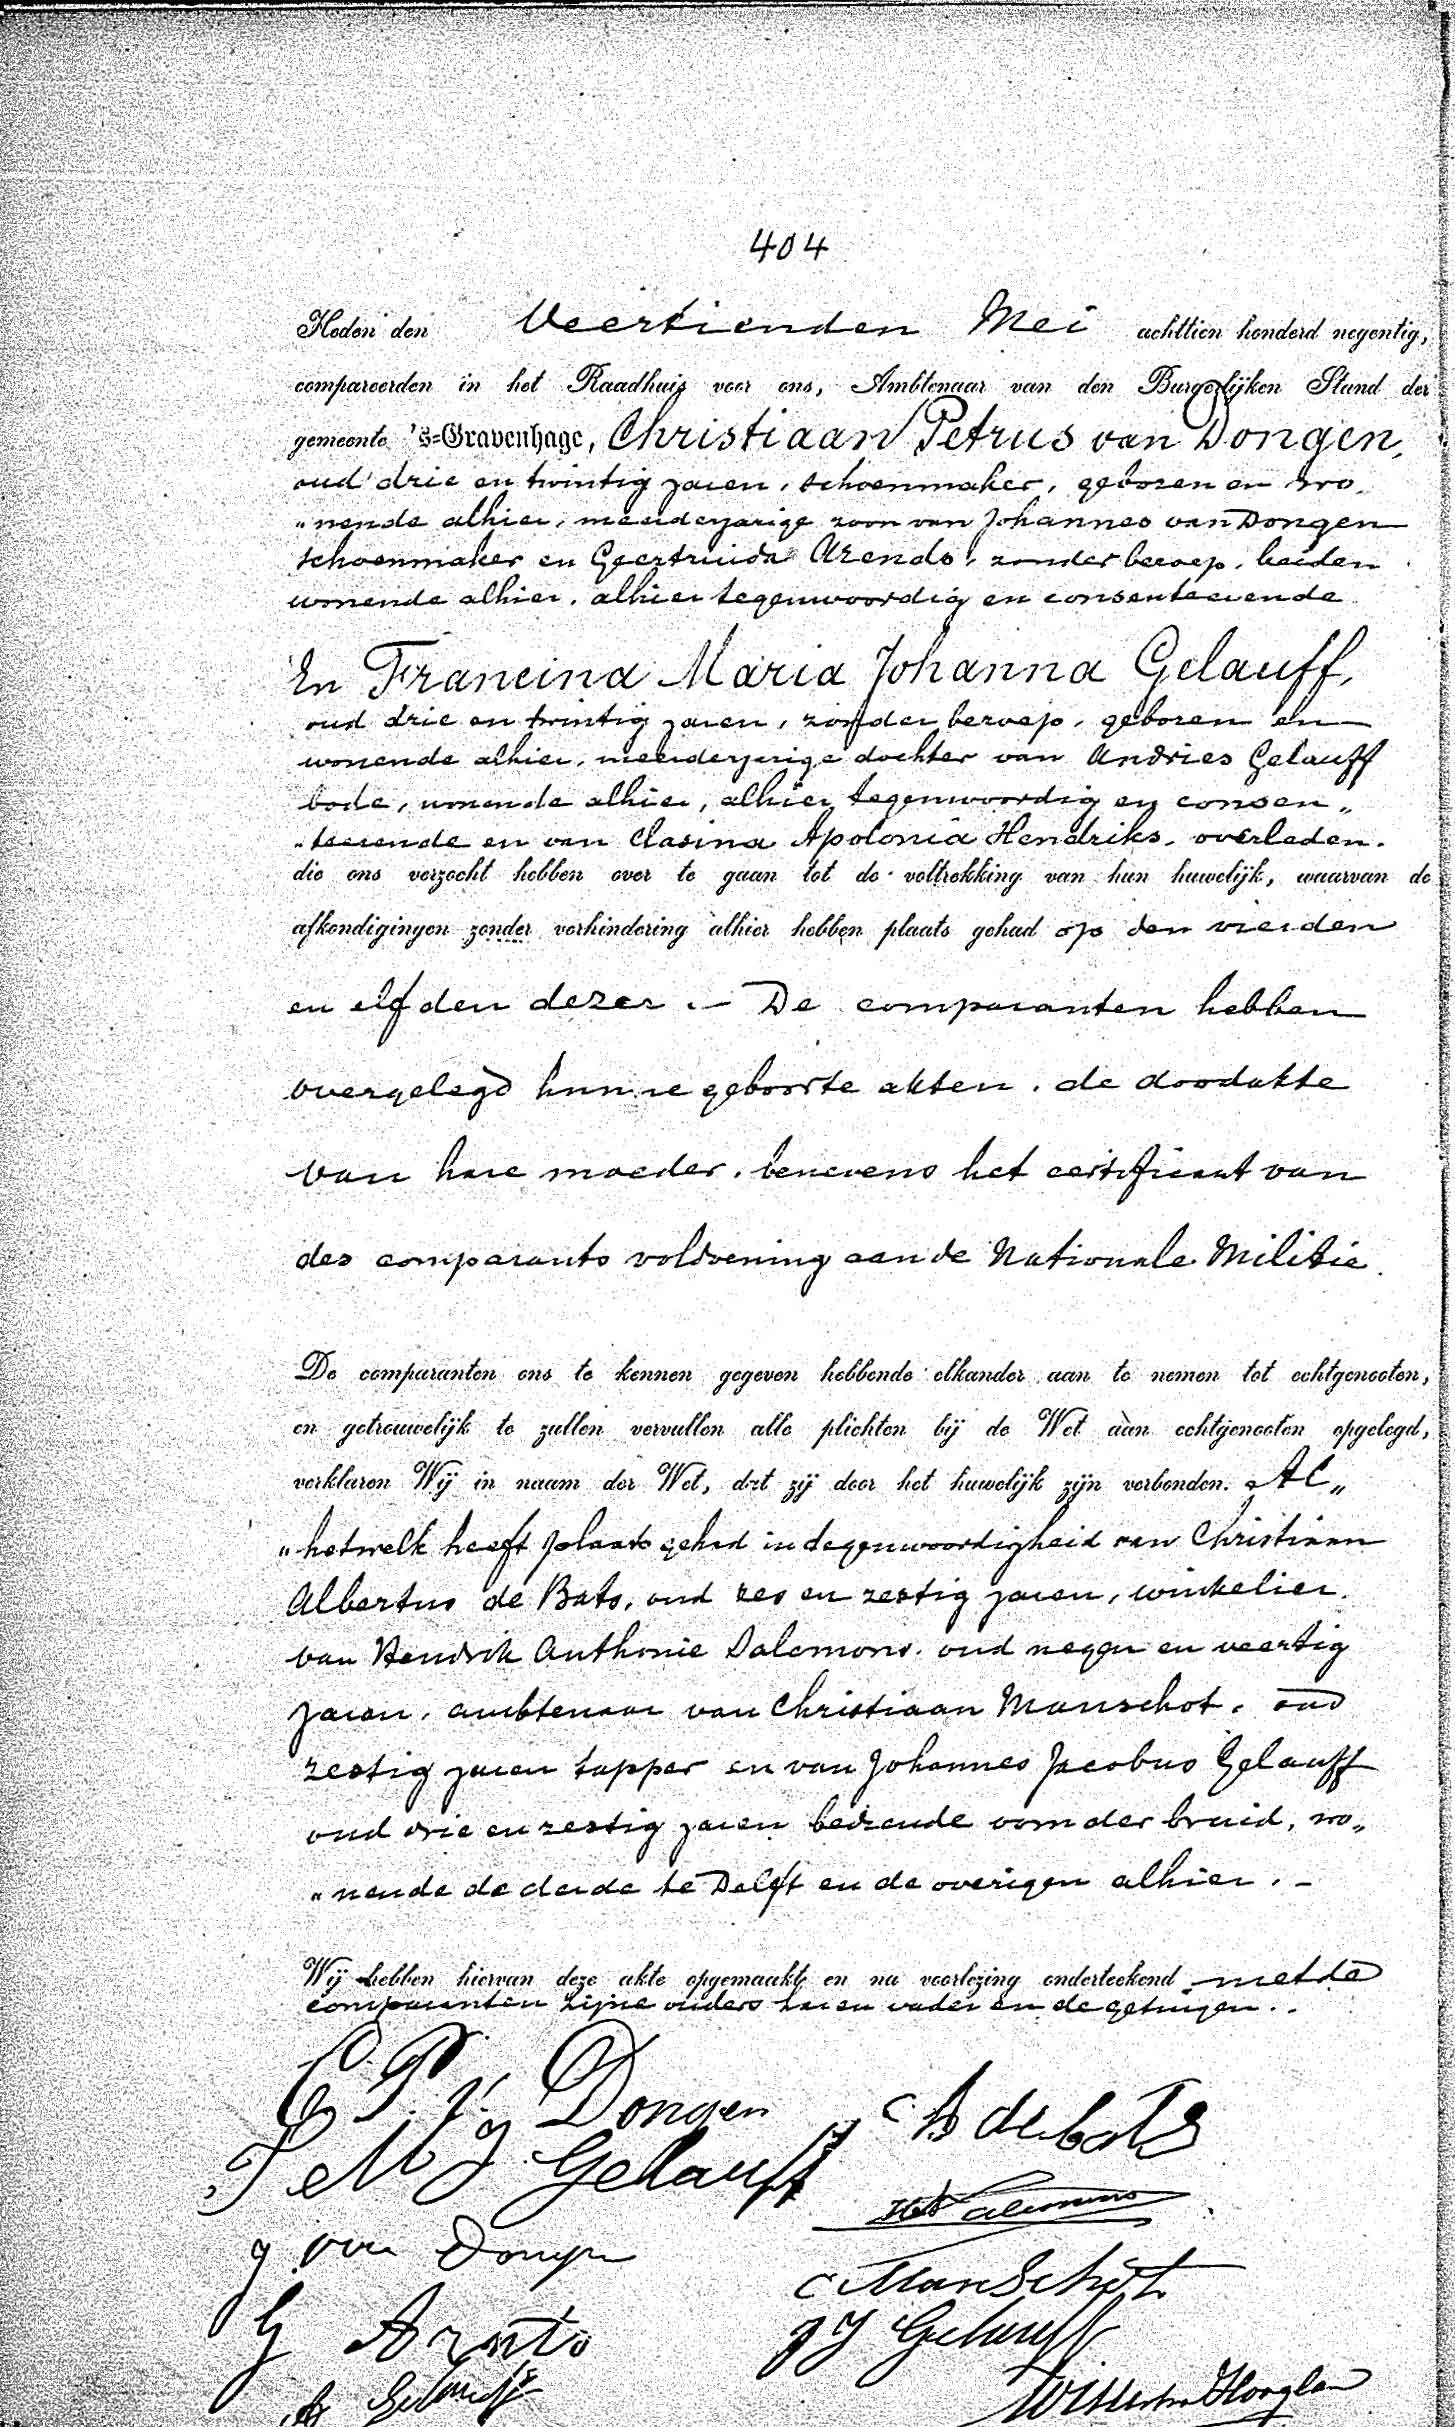 404
Heden den Veertienden Mei achttien honderd negentig,
compareerden in het Raadhuis voor ons, Ambtenaar van den Burgerlijken Stand der
gemeente 's=Gravenhage, Christiaan Petrus van Dongen,
oud drie en twintig jaren, schoenmaker, geboren en wo„
„nende alhier, meerderjarige zoon van Johannes van Dongen
schoenmaker en Geertruida Arends, zonder beroep, beiden
wonende alhier, alhier tegenwoordig en consenteerende
En Francina Maria Johanna Gelauff,
oud drie en twintig jaren, zonder beroep, geboren en
wonende alhier, meerderjarige dochter van Andries Gelauff
bode, wonende alhier, alhier tegenwoordig en consen„
„teerende en van Clasina Apolonia Hendriks, overleden.
die ons verzocht hebben over te gaan tot de voltrekking van hun huwelijk, waarvan de
afkondigingen zonder verhindering alhier hebben plaats gehad op den vierden
en elfden dezer. — De comparanten hebben
overgelegd hunne geboorte akten, de doodakte
van hare moeder, benevens het certificaat van
des comparants voldoening aan de Nationale Militie.
De comparanten ons te kennen gegeven hebbende elkander aan te nemen tot echtgenooten,
en getrouwelijk te zullen vervullen alle plichten bij de Wet aan echtgenooten opgelegd,
verklaren Wij in naam der Wet, dat zij door het huwelijk zijn verbonden. Al„
„hetwelk heeft plaats gehad in tegenwoordigheid van Christiaan
Albertus de Bats, oud zes en zestig jaren, winkelier,
van Hendrik Anthonie Salomons, oud negen en veertig
jaren, ambtenaar van Christiaan Manschot, oud
zestig jaren tapper en van Johannes Jacobus Gelauff
oud drie en zestig jaren bediende oom der bruid, wo„
„nende de derde te Delft en de overigen alhier. —
Wij hebben hiervan deze akte opgemaakt en na voorlezing onderteekend met de
comparanten zijne ouders haren vader en de getuigen. —
C. P. v. Dongen
F M J Gelauff
C A de bats
J van Dongen
HA Salomons
C Manschot
G Arents
J J Gelauff
A Gelauff